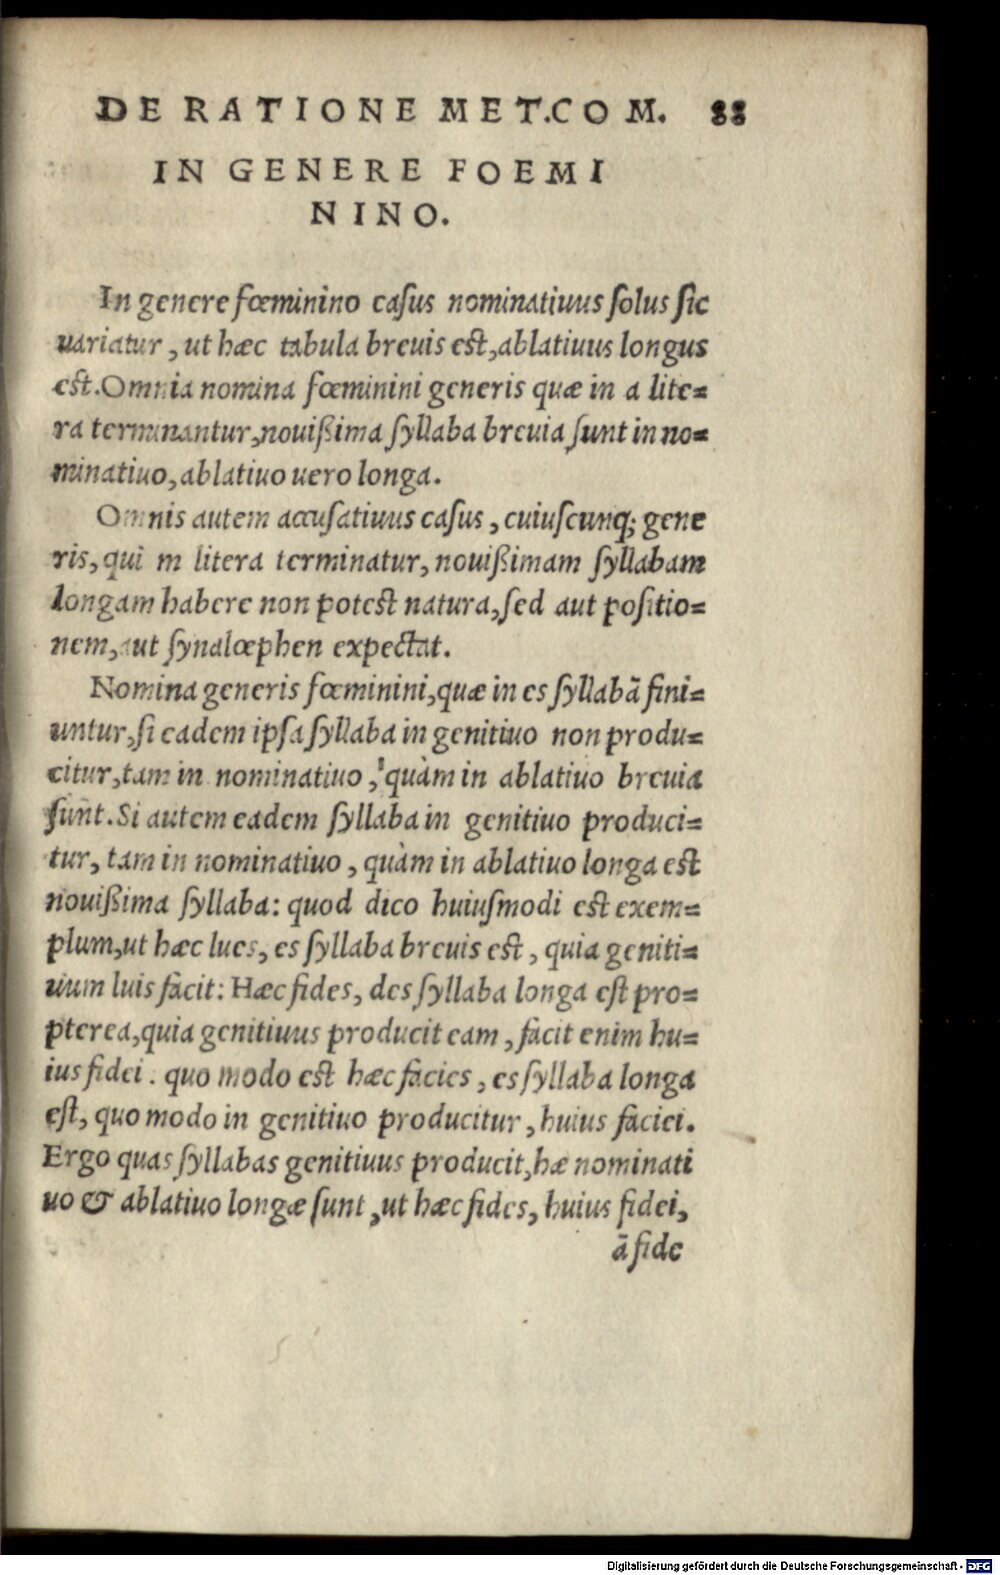 DE RATIONE MET.COM. 88
IN GENERE FOEMI
NINO.
In genere fœminino casus nominatiuus solus sic
uariatur, ut hæc tabula breuis est, ablatiuus longus
est. Omnia nomina fœminini generis quæ in a lite=
ra terminantur, nouißima syllaba breuia sunt in no=
minatiuo, ablatiuo uero longa.
Omnis autem accusatiuus casus, cuiuscunq; gene
ris, qui m litera terminatur, nouißimam syllabam
longam habere non potest natura, sed aut positio=
nem, aut synalœphen expectat.
Nomina generis fœminini, quæ in es syllabã fini=
untur, si eadem ipsa syllaba in genitiuo non produ=
citur, tam in nominatiuo, quàm in ablatiuo breuia
sunt. Si autem eadem syllaba in genitiuo produci=
tur, tam in nominatiuo, quàm in ablatiuo longa est
nouißima syllaba: quod dico huiusmodi est exem=
plum, ut hæc lues, es syllaba breuis est, quia geniti=
uum luis facit: Hæc fides, des syllaba longa est pro=
pterea, quia genitiuus producit eam, facit enim hu=
ius fidei. quo modo est hæc facies, es syllaba longa
est, quo modo in genitiuo producitur, huius faciei.
Ergo quas syllabas genitiuus producit, hæ nominati
uo & ablatiuo longæ sunt, ut hæc fides, huius fidei,
ã fide
Digitalisierung gefördert durch die Deutsche Forschungsgemeinschaft - DFG